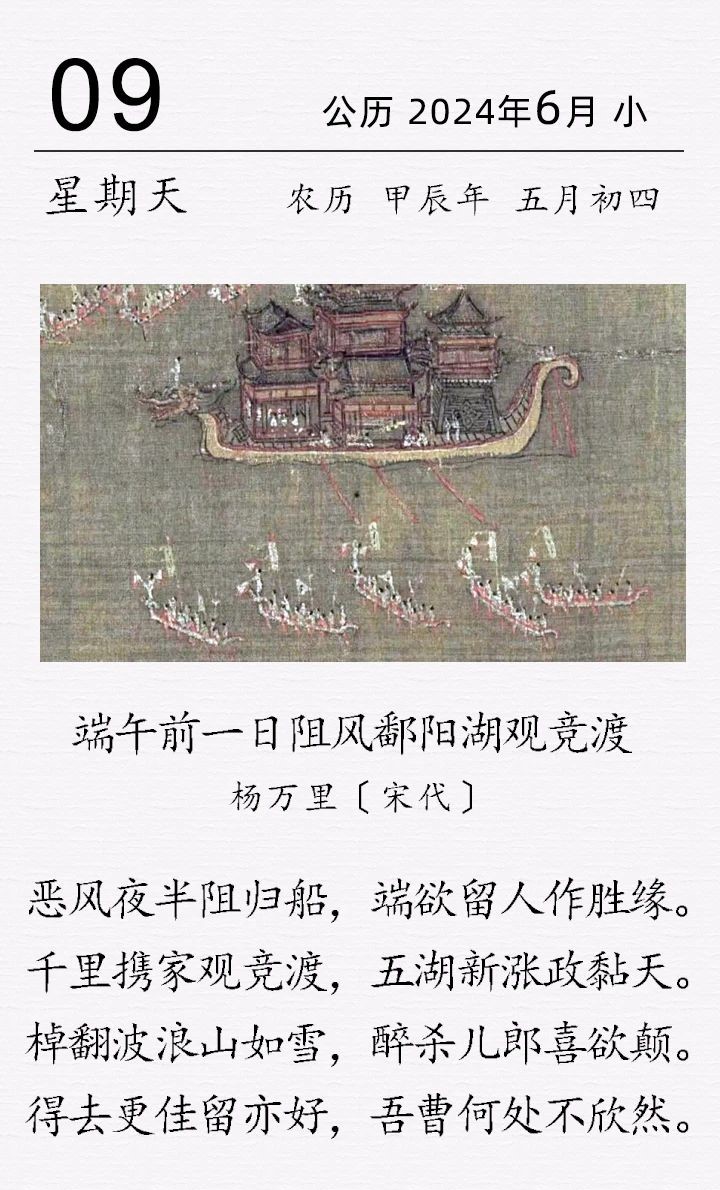 09
公历 2024年6月 小
星期天 农历 甲辰年 五月初四
端午前一日阻风鄱阳湖观竞渡
杨万里〔宋代〕
恶风夜半阻归船，端欲留人作胜缘。
千里携家观竞渡，五湖新涨政黏天。
棹翻波浪山如雪，醉杀儿郎喜欲颠。
得去更佳留亦好，吾曹何处不欣然。